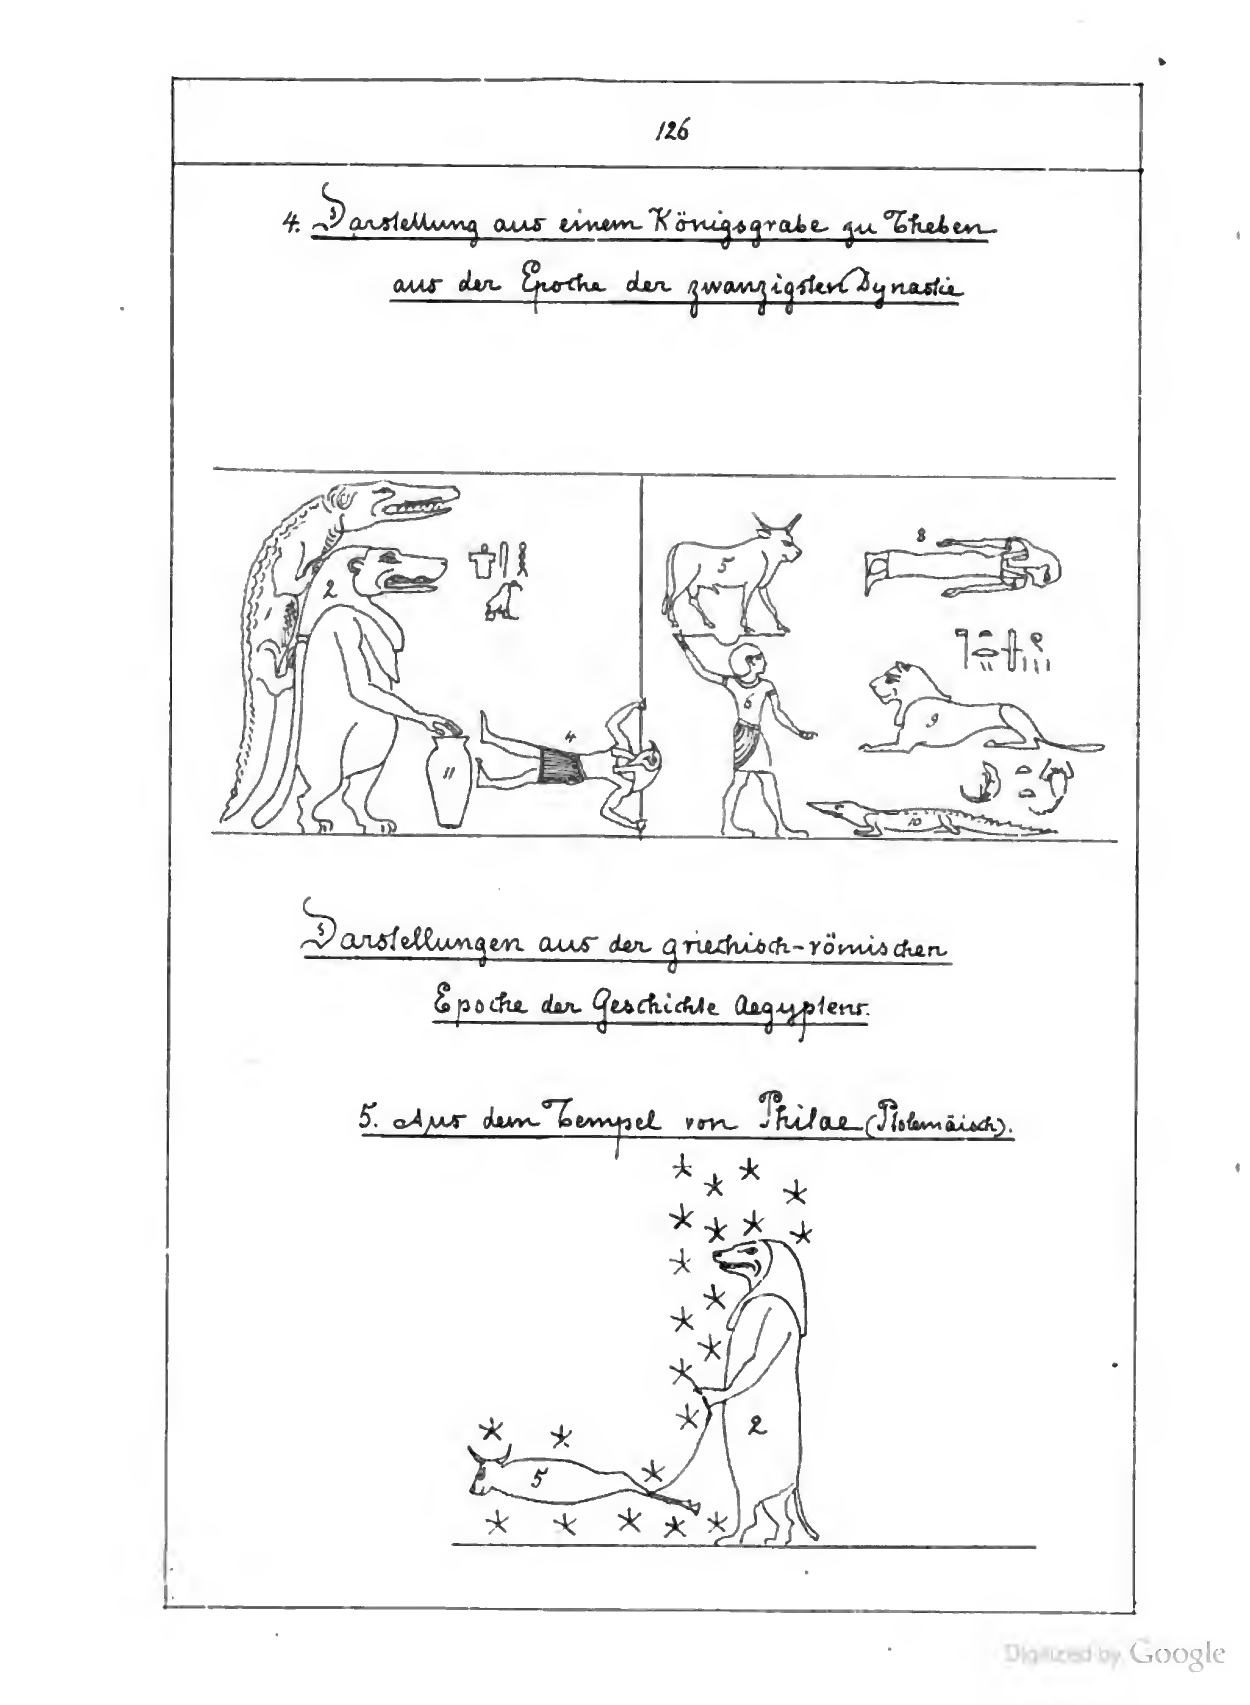 126
4. Darstellung aus einem Königsgrabe zu Theben
aus der Epoche der zwanzigsten Dynastie
1
2
11
4
5
6
8
9
10
Darstellungen aus der griechisch-römischen
Epoche der Geschichte Aegyptens.
5. Aus dem Tempel von Philae (Ptolemäisch).
5
2
Digitized by Google